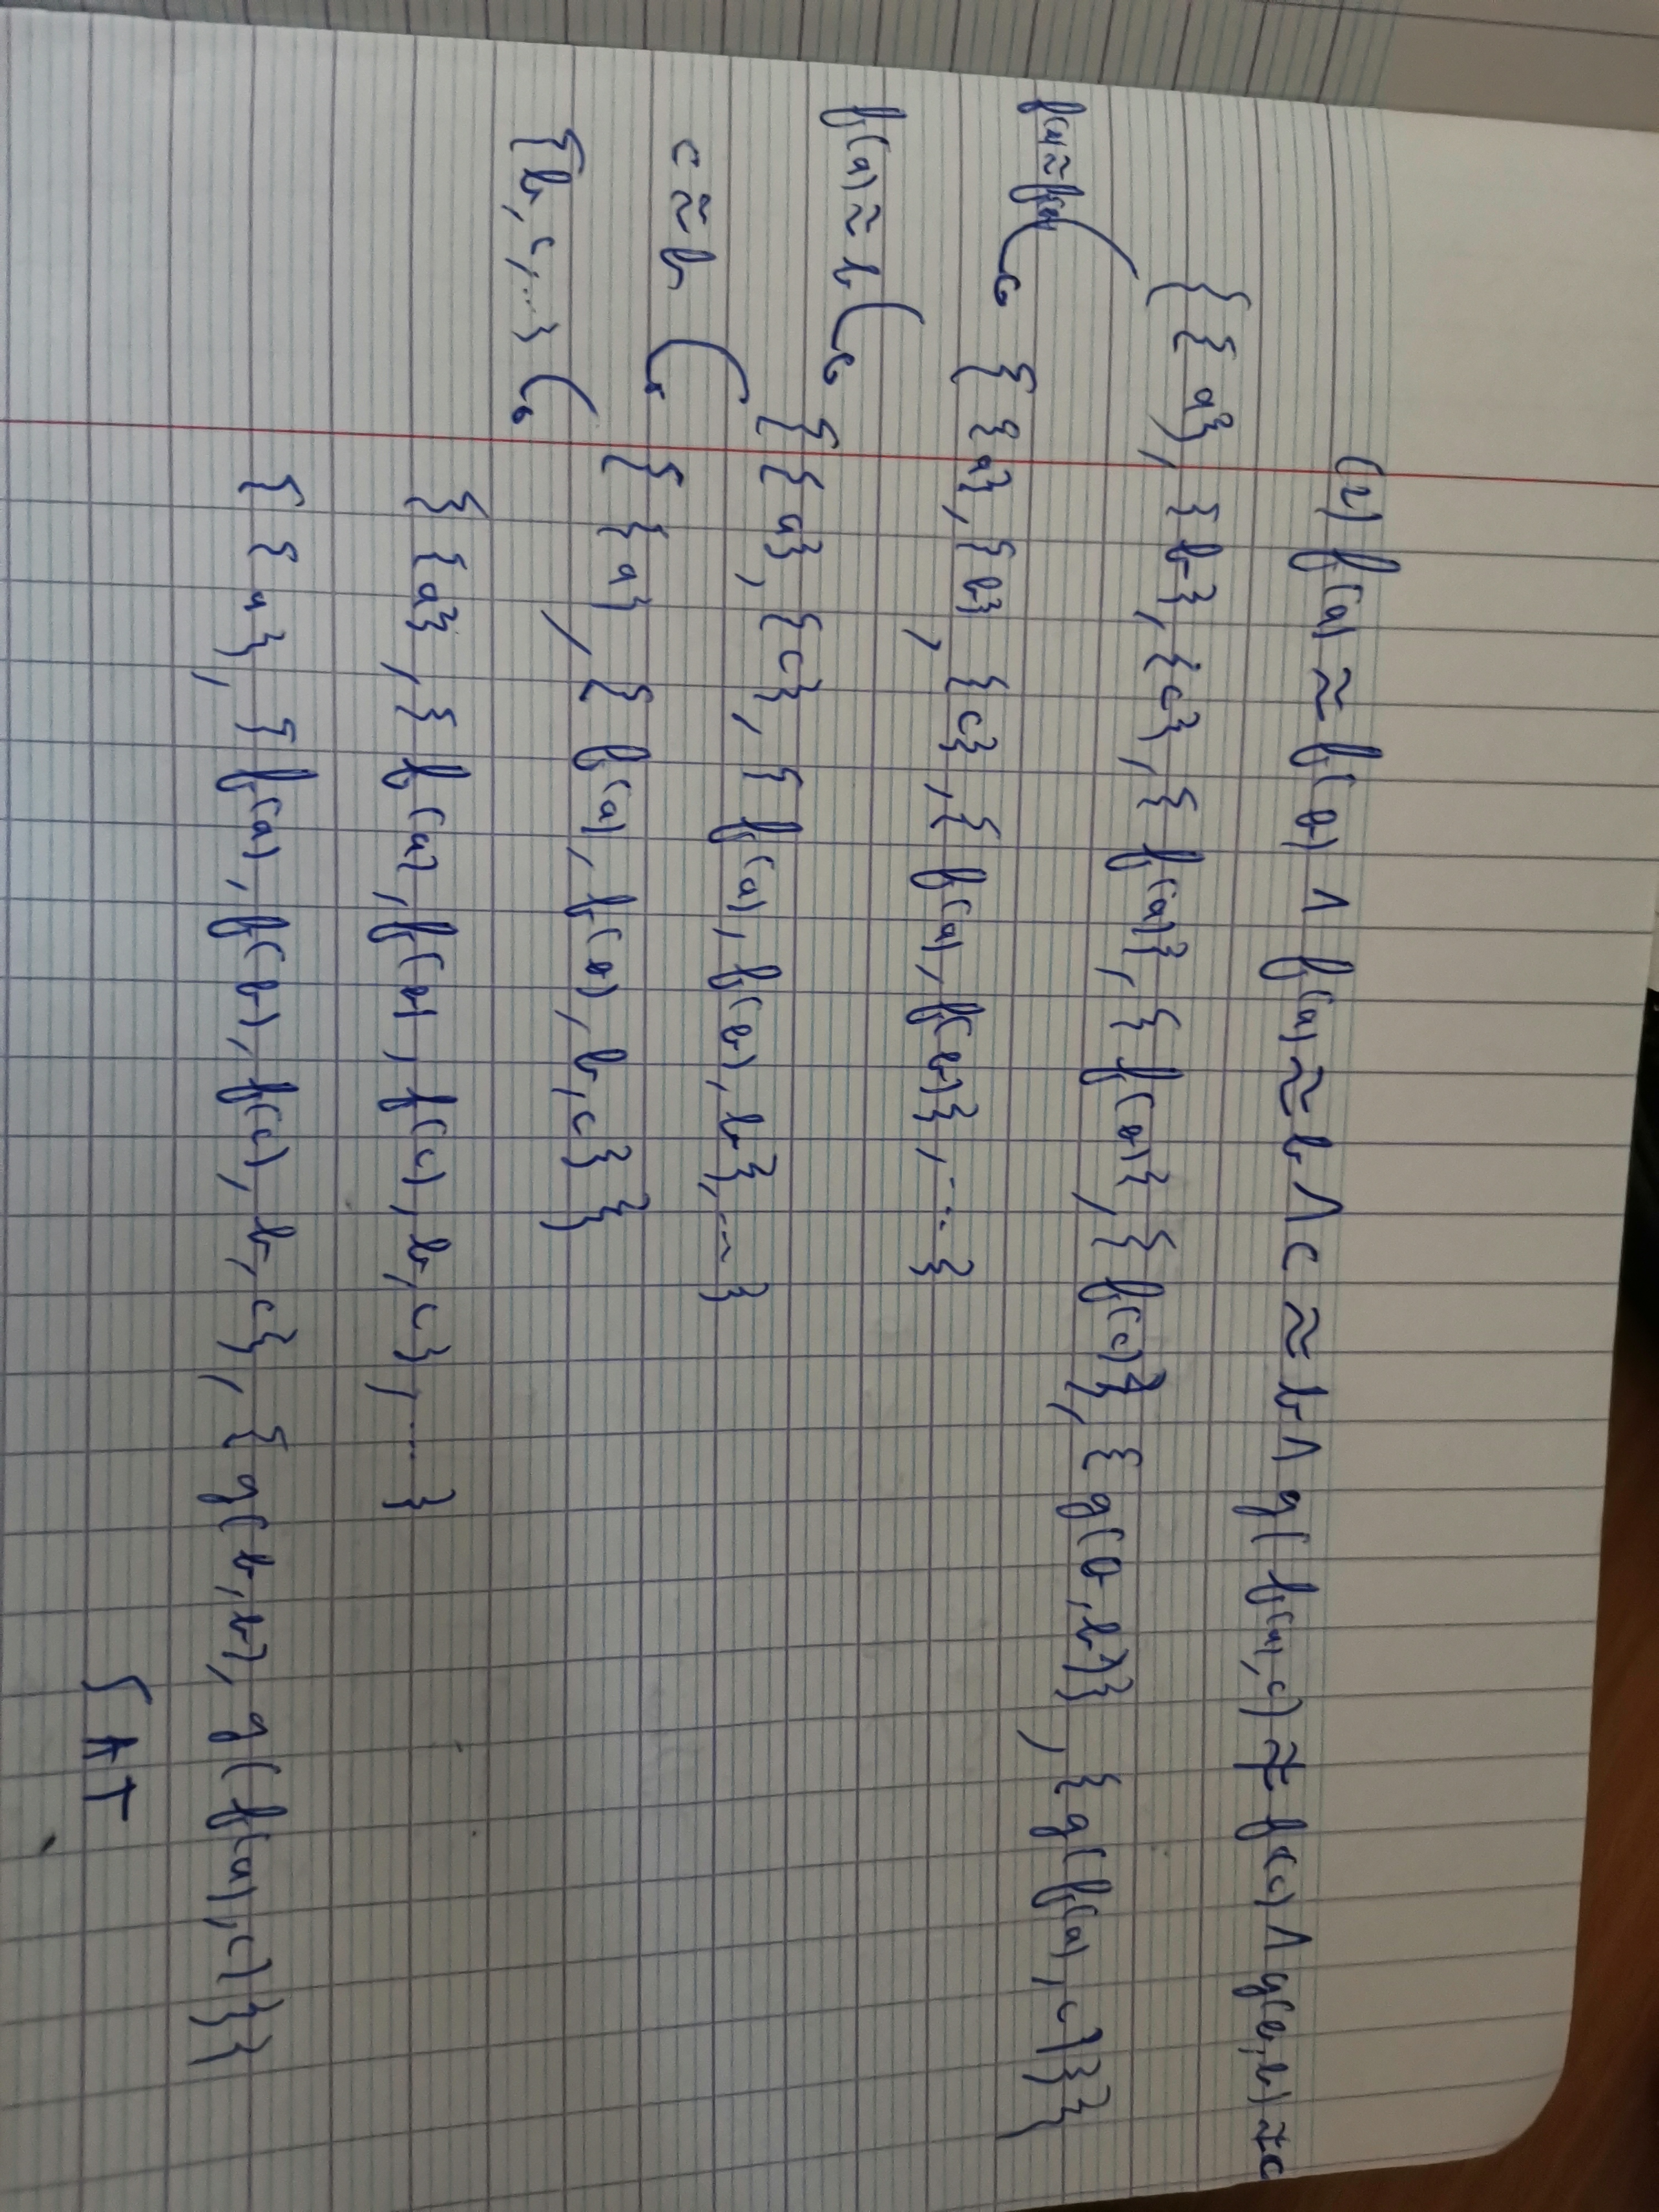 (2) f(a) ≈ f(b) ∧ f(a) ≈ b ∧ c ≈ b ∧ g(f(a),c) ≉ f(c) ∧ g(b,b) ≉ c
{{a}, {b}, {c}, {f(a)}, {f(b)}, {f(c)}, {g(b,b)}, {g(f(a),c)}}
f(a)≈f(b) {{a}, {b}, {c}, {f(a), f(b)}, ...}
f(a) ≈ b {{a}, {c}, {f(a), f(b), b}, ...}
c ≈ b {{a}, {f(a), f(b), b, c}}
{b, c, ...} {{a}, {f(a), f(b), f(c), b, c}, ...}
{{a}, {f(a), f(b), f(c), b, c}, {g(b,b), g(f(a),c)}}
SAT